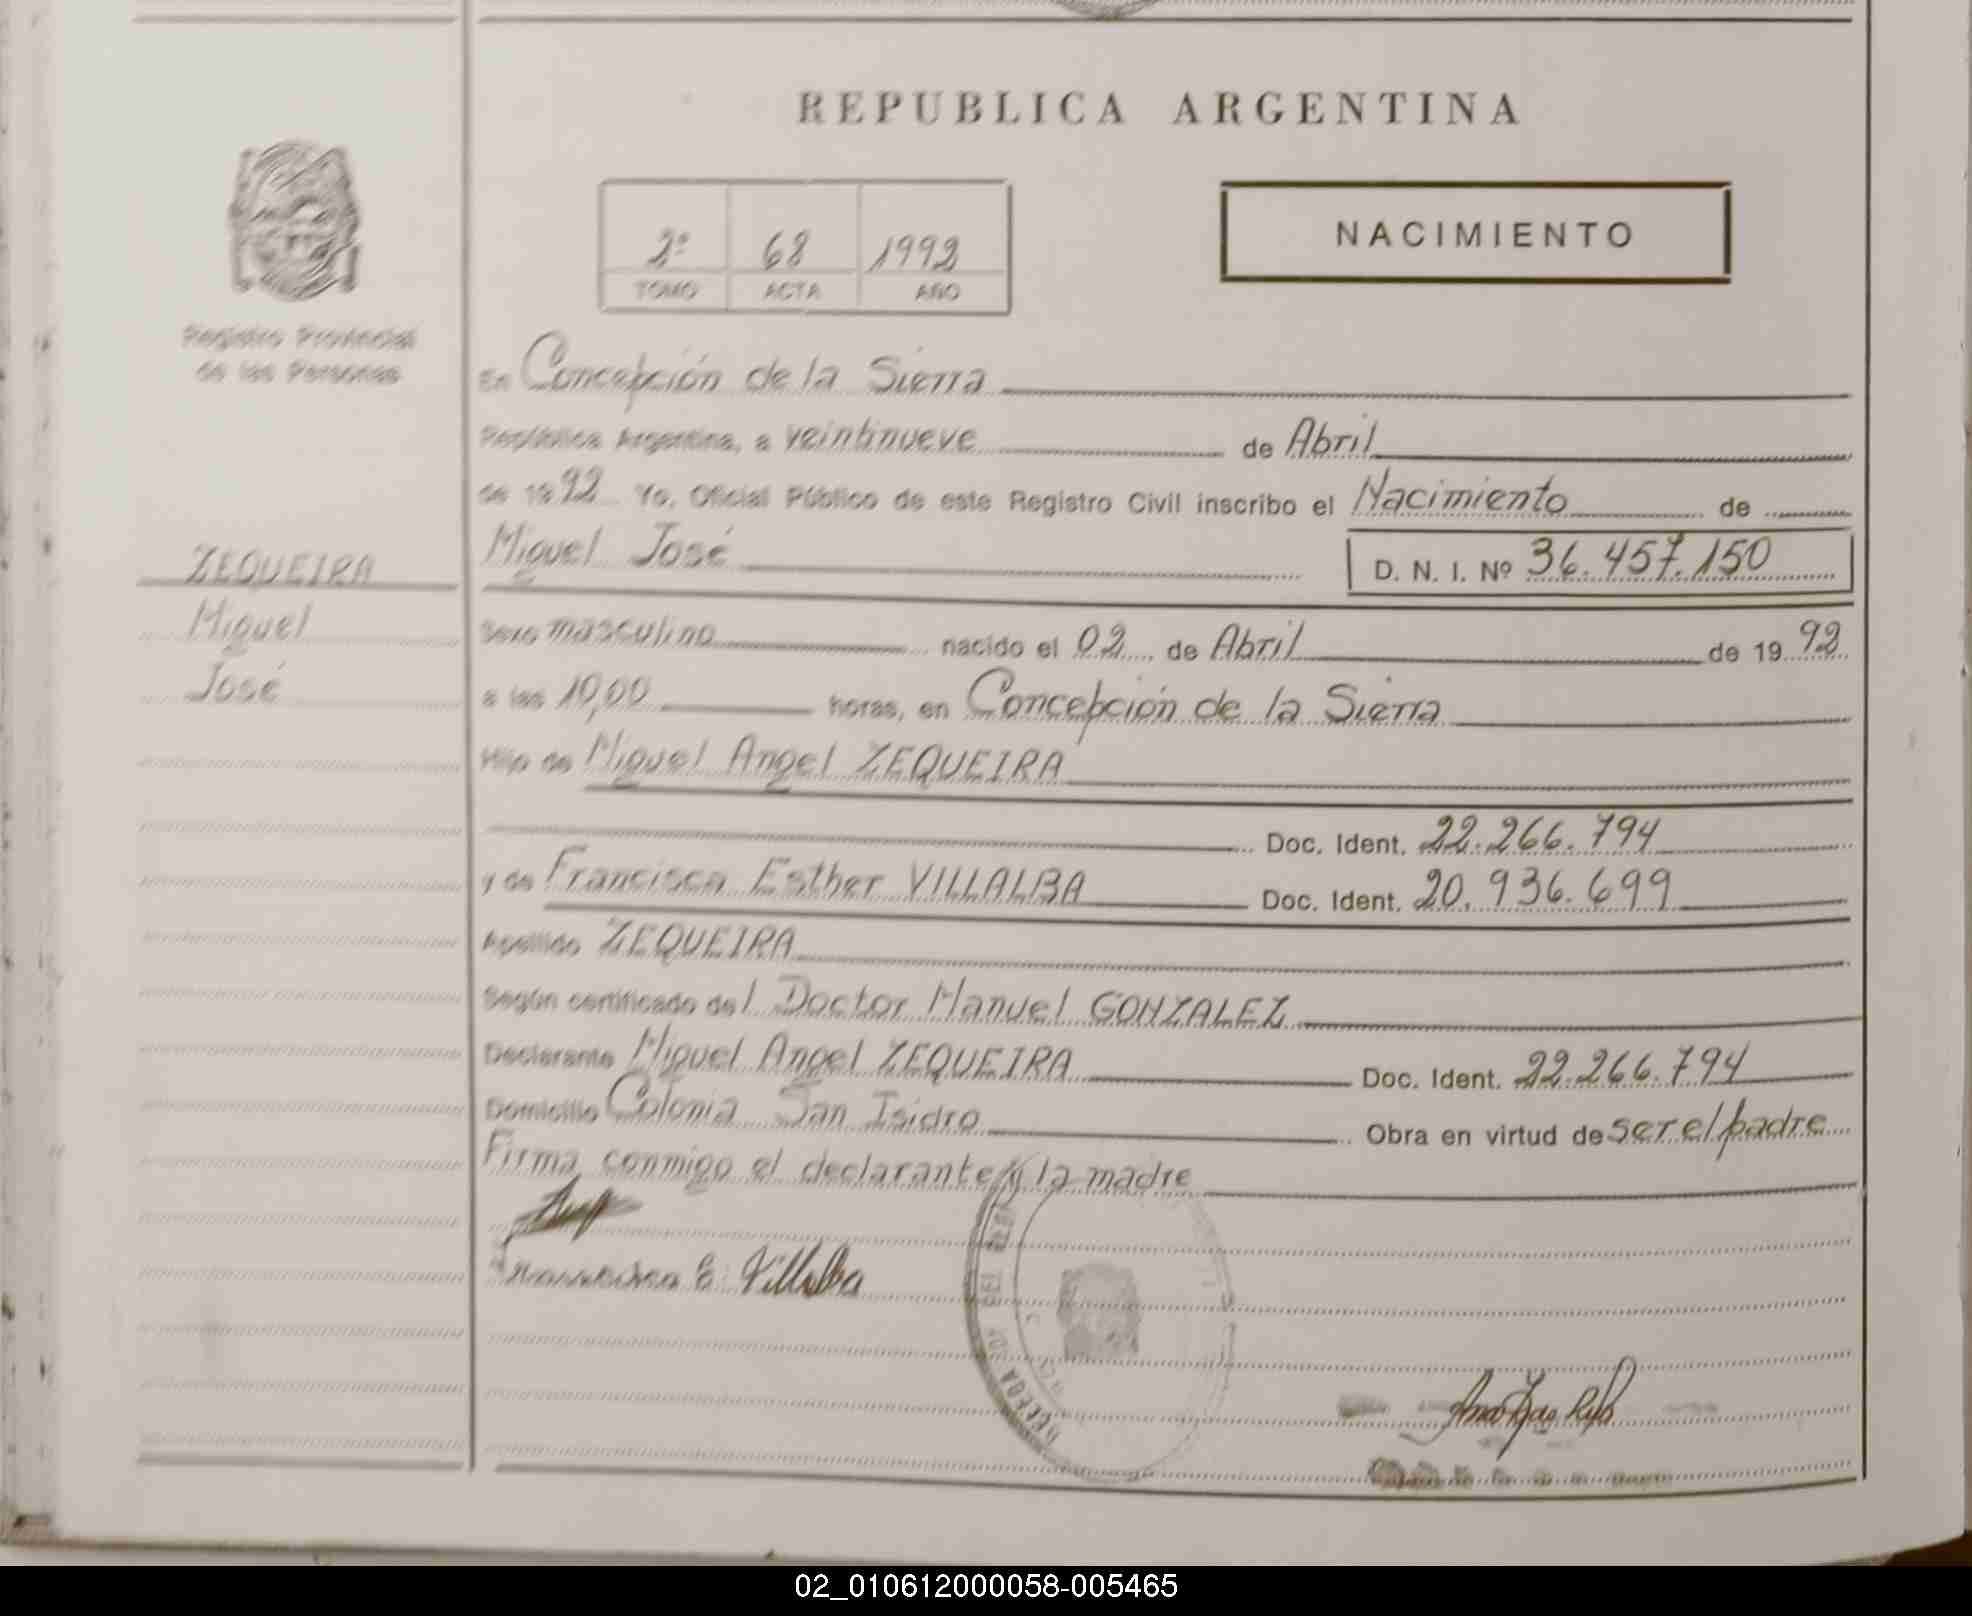 REPUBLICA ARGENTINA
2º 68 1992
TOMO ACTA AÑO
NACIMIENTO
Registro Provincial
de las Personas
ZEQUEIRA
Miguel
José
En Concepción de la Sierra
República Argentina, a veintinueve de Abril
de 1992 Yo, Oficial Público de este Registro Civil inscribo el Nacimiento de
Miguel José D. N. I. Nº 36.457.150
Sexo masculino nacido el 02 de Abril de 1992
a las 10,00 horas, en Concepción de la Sierra
Hijo de Miguel Angel ZEQUEIRA
Doc. Ident. 22.266.794
y de Francisca Esther VILLALBA Doc. Ident. 20.936.699
Apellido ZEQUEIRA
Según certificado del Doctor Manuel GONZALEZ
Declarante Miguel Angel ZEQUEIRA Doc. Ident. 22.266.794
Domicilio Colonia San Isidro Obra en virtud de ser el padre
Firma conmigo el declarante y la madre
Francisca E. Villalba
02_010612000058-005465